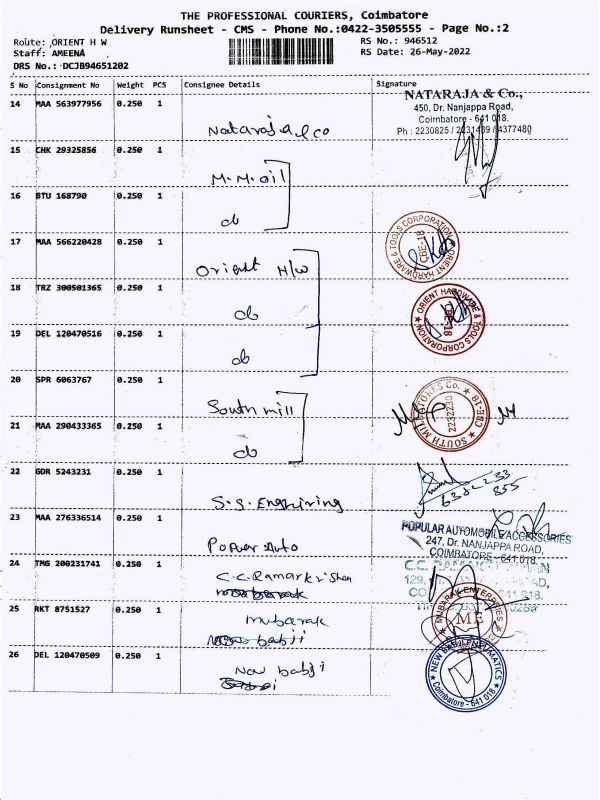 THE PROFESSIONAL COURIERS, Coimbatore
Delivery Runsheet - CMS - Phone No.:0422-3505555 - Page No.:2
Route: ORIENT H W RS No.: 946512
Staff: AMEENA RS Date: 26-May-2022
DRS No.: DCJB94651202
S No Consignment No Weight PCS Consignee Details Signature
14 MAA 563977956 0.250 1
Nataraja & co
NATARAJA & Co.,
450, Dr. Nanjappa Road,
Coimbatore - 641 018.
Ph : 2230825 / 2231439 / 4377480
15 CHK 29325856 0.250 1
M.M.oil
16 BTU 168790 0.250 1
do
17 MAA 566220428 0.250 1
Orient H/w
ORIENT HARDWARE & TOOLS CORPORATION
CBE-18
18 TRZ 300501365 0.250 1
do
ORIENT HARDWARE & TOOLS CORPORATION
CBE-18
19 DEL 120470516 0.250 1
do
20 SPR 6063767 0.250 1
South mill
SOUTH MILL STORES Co.
2232230
CBE-18
21 MAA 290433365 0.250 1
do
22 GDR 5243231 0.250 1
S.S. Engniring
23 MAA 276336514 0.250 1
Popuer Auto
POPULAR AUTOMOBILE ACCESSORIES
247, Dr. NANJAPPA ROAD,
COIMBATORE - 641 018.
24 TMG 200231741 0.250 1
C.C. Ramarkrishan
C.C.
129,
25 RKT 8751527 0.250 1
mubarak
MUBARAK ENTERPRIES
ME
26 DEL 120470509 0.250 1
New babji
NEW BABJI PNEUMATICS
Coimbatore - 641 018